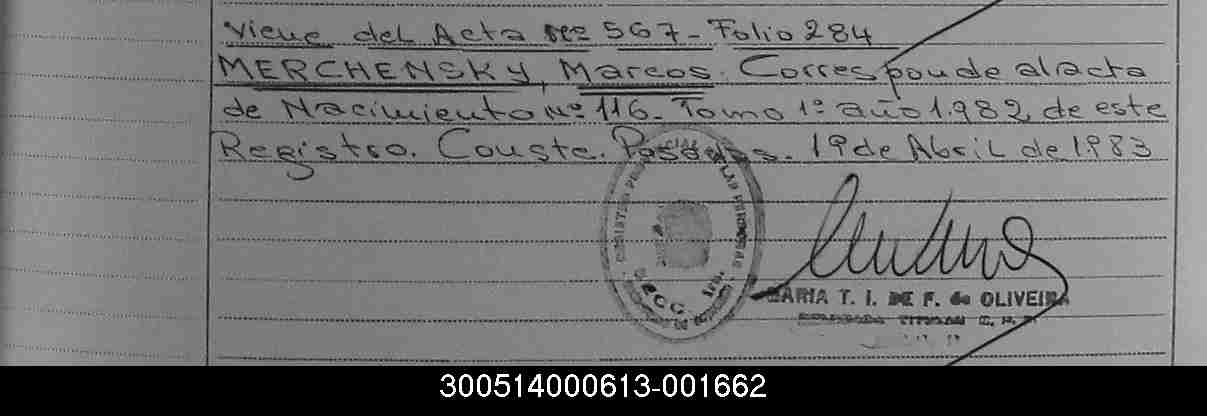 Viene del Acta Nº 567- Folio 284
MERCHENSKY, Marcos. Corresponde al acta
de Nacimiento Nº 116- Tomo 1º año 1.982 de este
Registro. Conste. Posadas. 19 de Abril de 1983
MARIA T. I. DE F. de OLIVEIRA
300514000613-001662